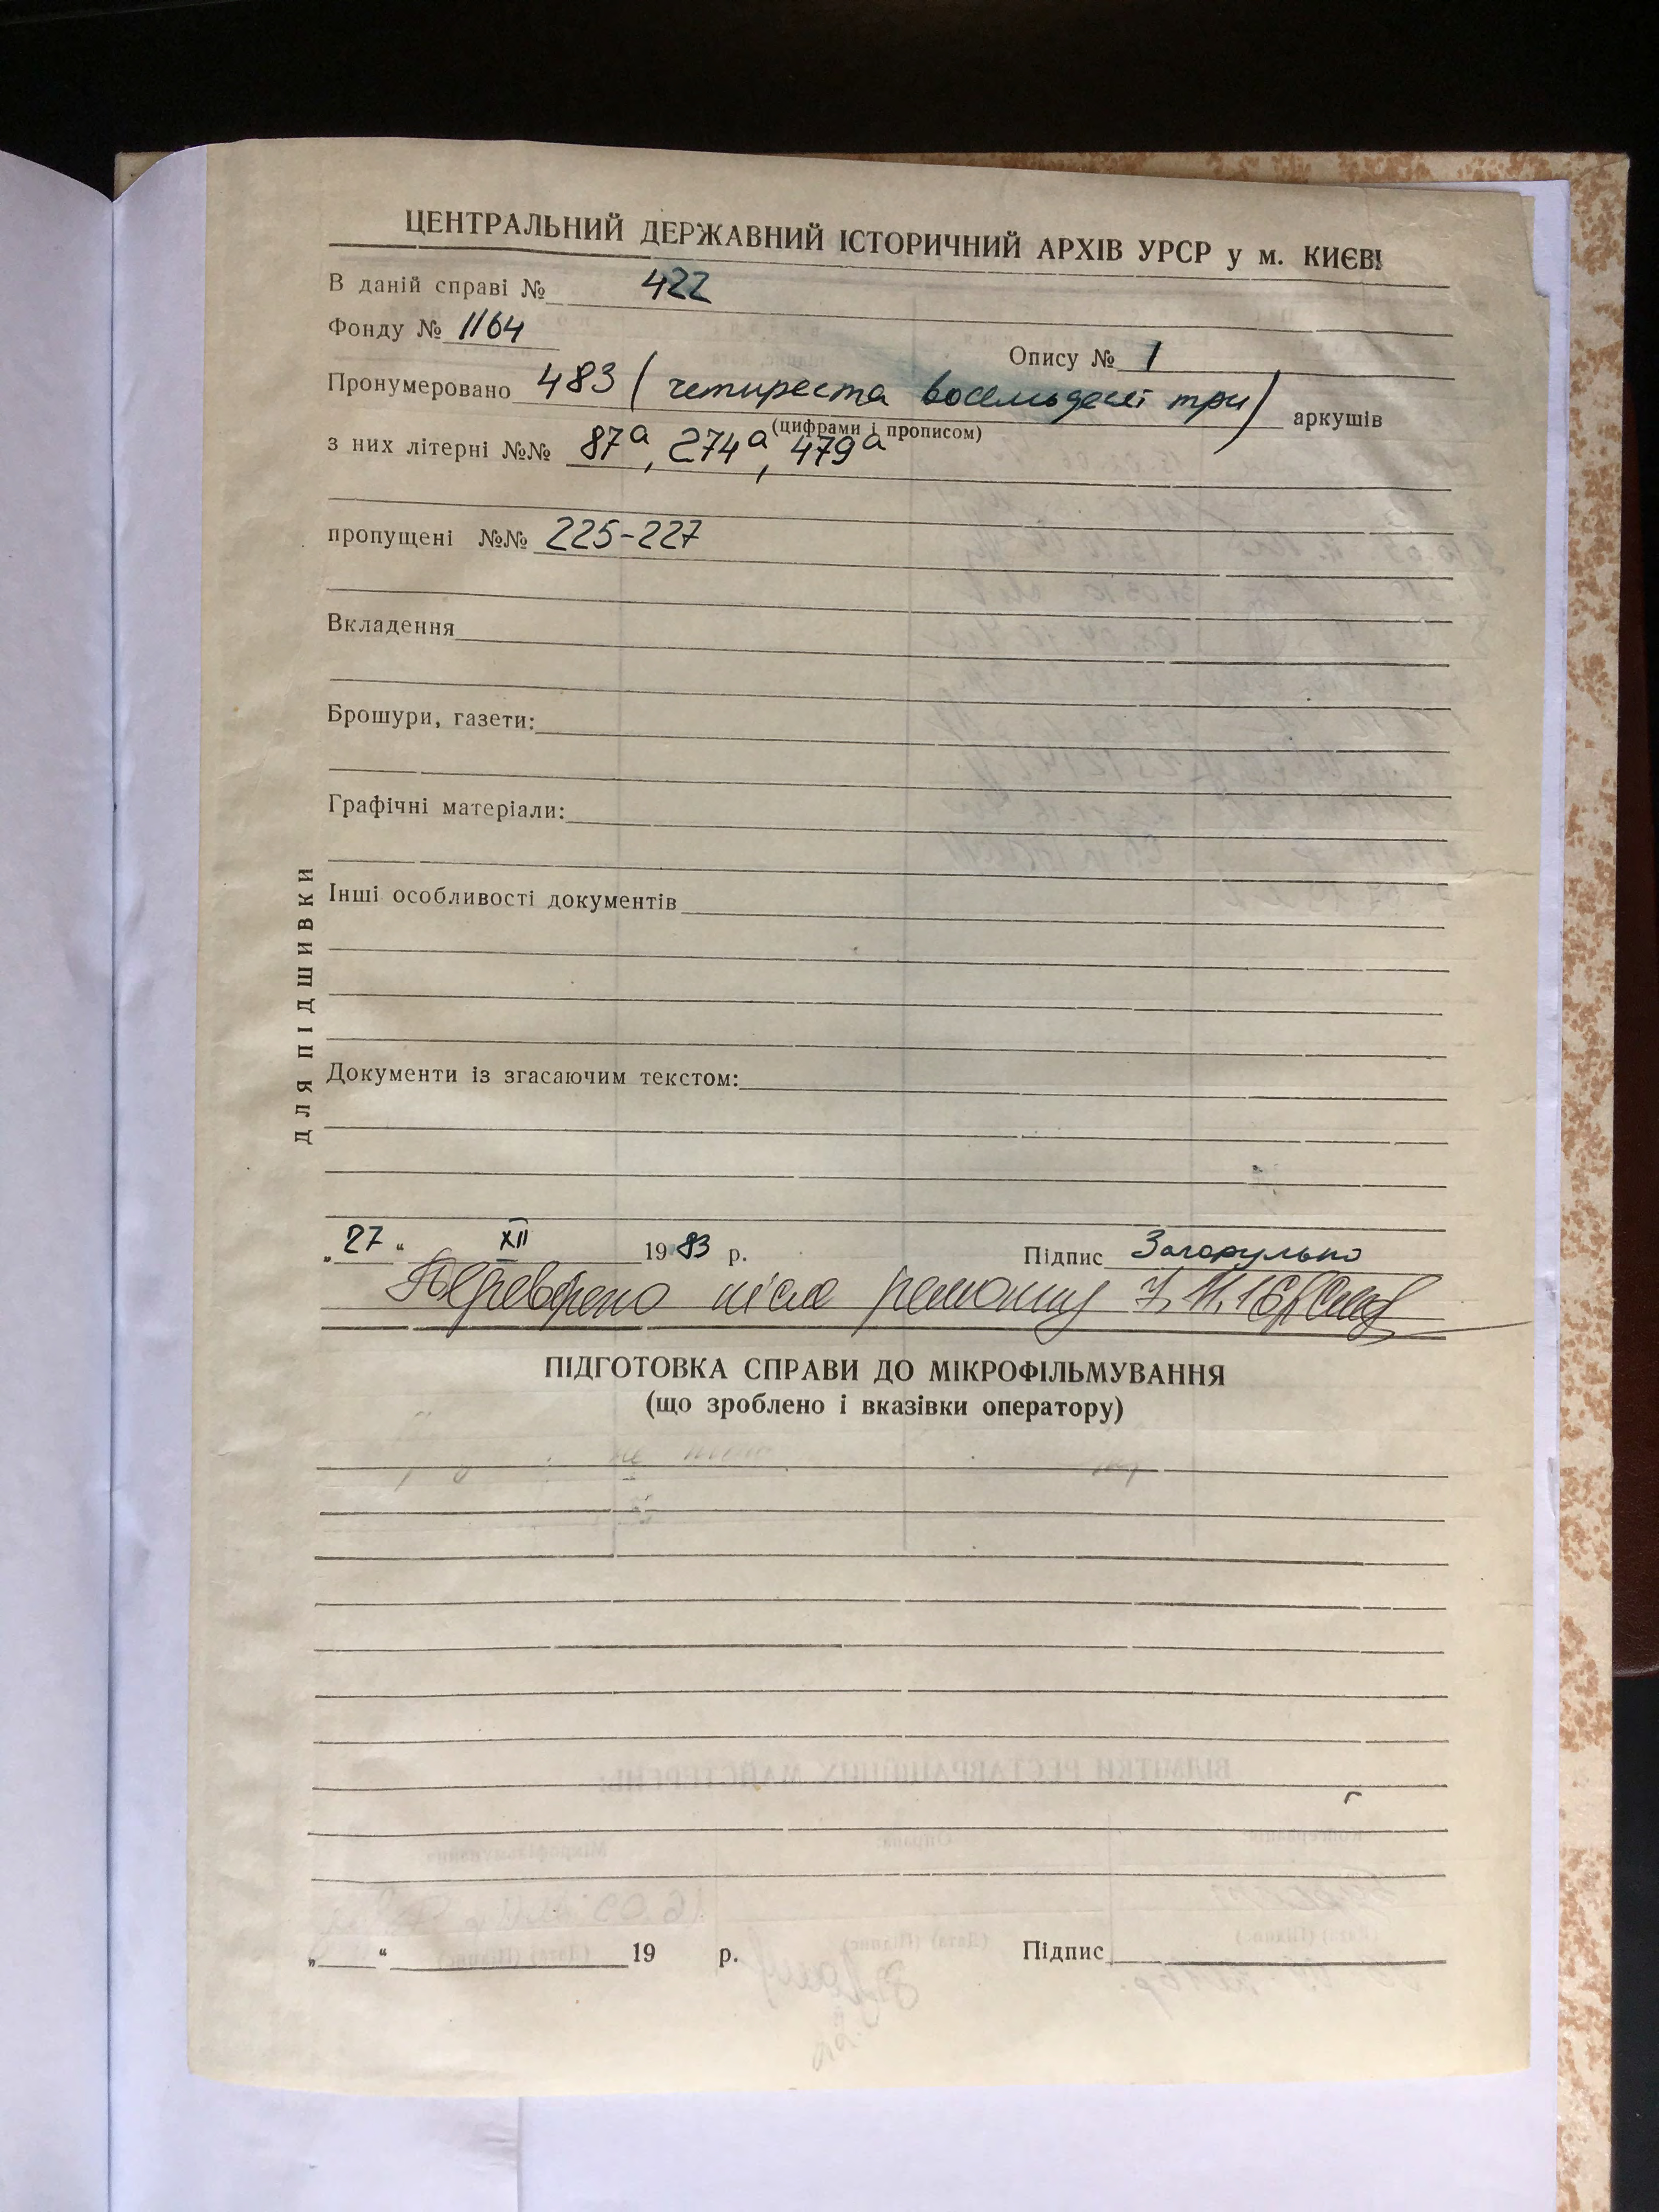 ЦЕНТРАЛЬНИЙ ДЕРЖАВНИЙ ІСТОРИЧНИЙ АРХІВ УРСР у м. КИЄВІ
В даній справі № 422
Фонду № 1164
Опису № 1
Пронумеровано 483 (четиреста восемьдесят три) аркушів
(цифрами і прописом)
з них літерні №№ 87а, 274а, 479а
пропущені №№ 225-227
Вкладення
Брошури, газети:
Графічні матеріали:
Інші особливості документів
ДЛЯ ПІДШИВКИ
Документи із згасаючим текстом:
„27“ XII 1983 р. Підпис Загорулько
Перевірено після ремонту 7.11.16
ПІДГОТОВКА СПРАВИ ДО МІКРОФІЛЬМУВАННЯ
(що зроблено і вказівки оператору)
„ “ 19 р. Підпис